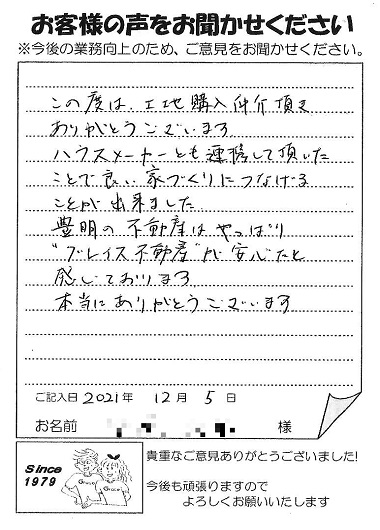 お客様の声をお聞かせください
※今後の業務向上のため、ご意見をお聞かせください。
この度は、土地購入仲介頂き
ありがとうございます
ハウスメーカーとも連携して頂いた
ことで良い家づくりにつなげる
ことが出来ました
豊明の不動産はやっぱり
"グレイス不動産"が安心だと
感じております
本当にありがとうございます
ご記入日 2021年 12月 5日
お名前 様
Since
1979
Grace
Grace
貴重なご意見ありがとうございました!
今後も頑張りますので
よろしくお願いいたします